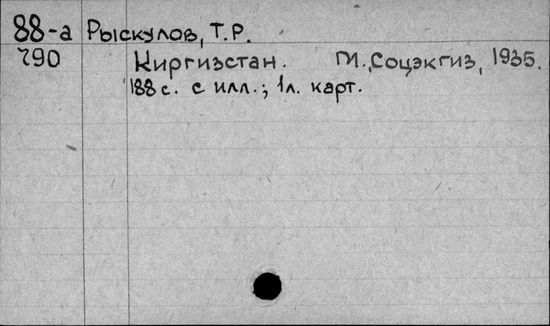 88-а Рыскулов, Т.Р.
790 Киргизстан. М., Соцэкгиз, 1935.
188 с. с илл.; 1л. карт.